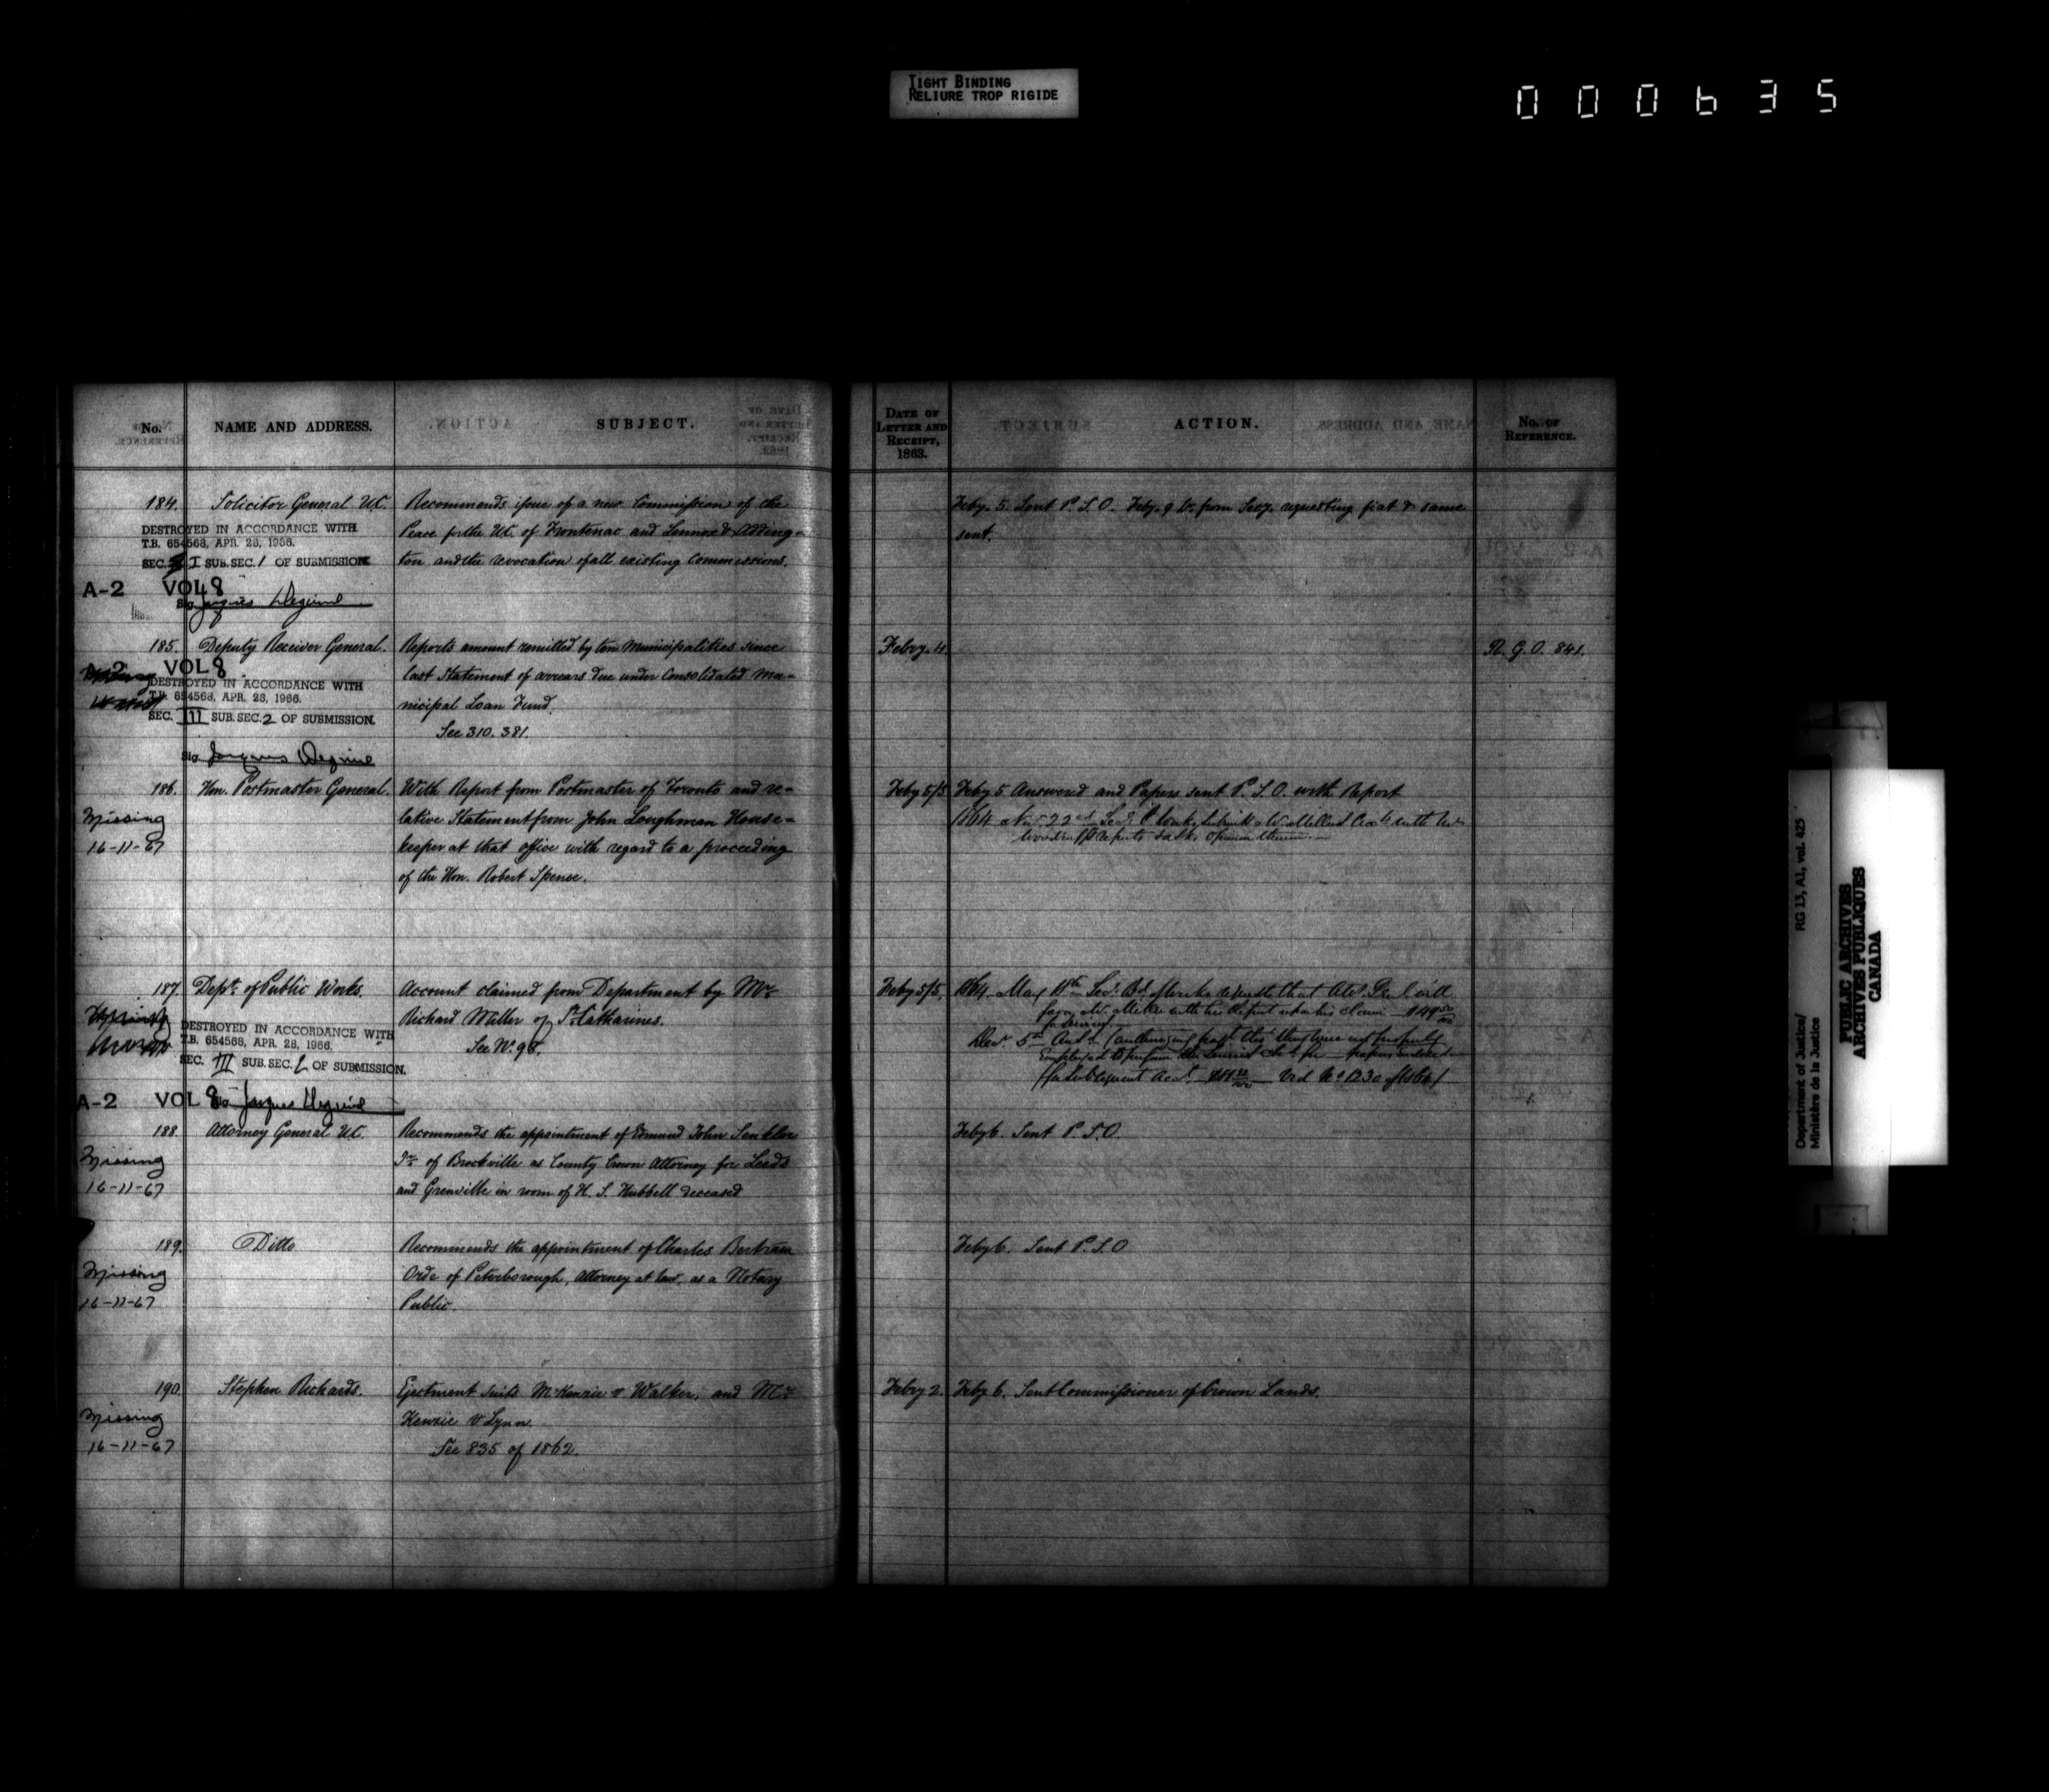 TIGHT BINDING
RELIURE TROP RIGIDE
000635
No. NAME AND ADDRESS. SUBJECT.
184. Solicitor General U.C. Recommends issue of a new Commission of the
Peace for the U.C. of Frontenac and Lennox & Adding-
ton and the revocation of all existing Commissions.
DESTROYED IN ACCORDANCE WITH
T.B. 654568, APR. 28, 1966.
SEC. I SUB. SEC. 1 OF SUBMISSION
A-2 VOL 8
Sig. Jacques
185. Deputy Receiver General. Reports amount remitted by ten Municipalities since
last Statement of arrears due under Consolidated Mu-
nicipal Loan Fund.
See 310. 381.
A-2 VOL 8
DESTROYED IN ACCORDANCE WITH
T.B. 654568, APR. 28, 1966.
SEC. III SUB. SEC. 2 OF SUBMISSION.
Sig. Jacques
186. Hon. Postmaster General. With Report from Postmaster of Toronto and re-
lative Statement from John Loughman House-
keeper at that office with regard to a proceeding
of the Hon. Robert Spence.
Missing
16-11-67
187. Dept. of Public Works. Account claimed from Department by Mr
Richard Miller of St. Catharines.
See No. 98.
DESTROYED IN ACCORDANCE WITH
T.B. 654568, APR. 28, 1966.
SEC. III SUB. SEC. 2 OF SUBMISSION.
A-2 VOL 8
Sig. Jacques
188. Attorney General U.C. Recommends the appointment of Edmund John Senkler
Jr. of Brockville as County Crown Attorney for Leeds
and Grenville in room of H. S. Hubbell deceased
Missing
16-11-67
189. Ditto Recommends the appointment of Charles Bertram
Orde of Peterborough, Attorney at law, as a Notary
Public.
Missing
16-11-67
190. Stephen Richards. Ejectment Suits McKenzie v Walker, and Mc
Kenzie v Lynn.
See 835 of 1862.
Missing
16-11-67
DATE OF LETTER AND RECEIPT, 1863. ACTION. No. OF REFERENCE.
Feby. 5. Sent P.S.O. Feby. 9 from Secy. requesting fiat & same
sent.
Febry. 4. R.G.O. 841.
Feby 5/5 Feby 5 Answered and Papers sent P.S.O. with Report
1864
Feby 5/5. 1864 May
Feby 6. Sent P.S.O.
Feby 6. Sent P.S.O
Febry 2. Feby 6. Sent Commissioner of Crown Lands.
Department of Justice/
Ministère de la Justice
RG 13, A1, vol. 425
PUBLIC ARCHIVES
ARCHIVES PUBLIQUES
CANADA